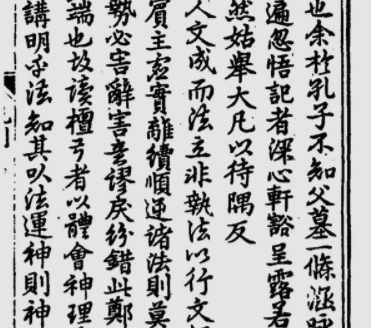 也余於孔子不知父墓一條涵
遍忽悟記者深心軒豁呈露若
然姑舉大凡以待隅反
人文成而法立非執法以行文
賓主虛實離續順逆諸法則莫
勢必害辭害意謬戾紛錯此鄭
端也故读檀弓者以體會神理
講明乎法知其以法運神則神